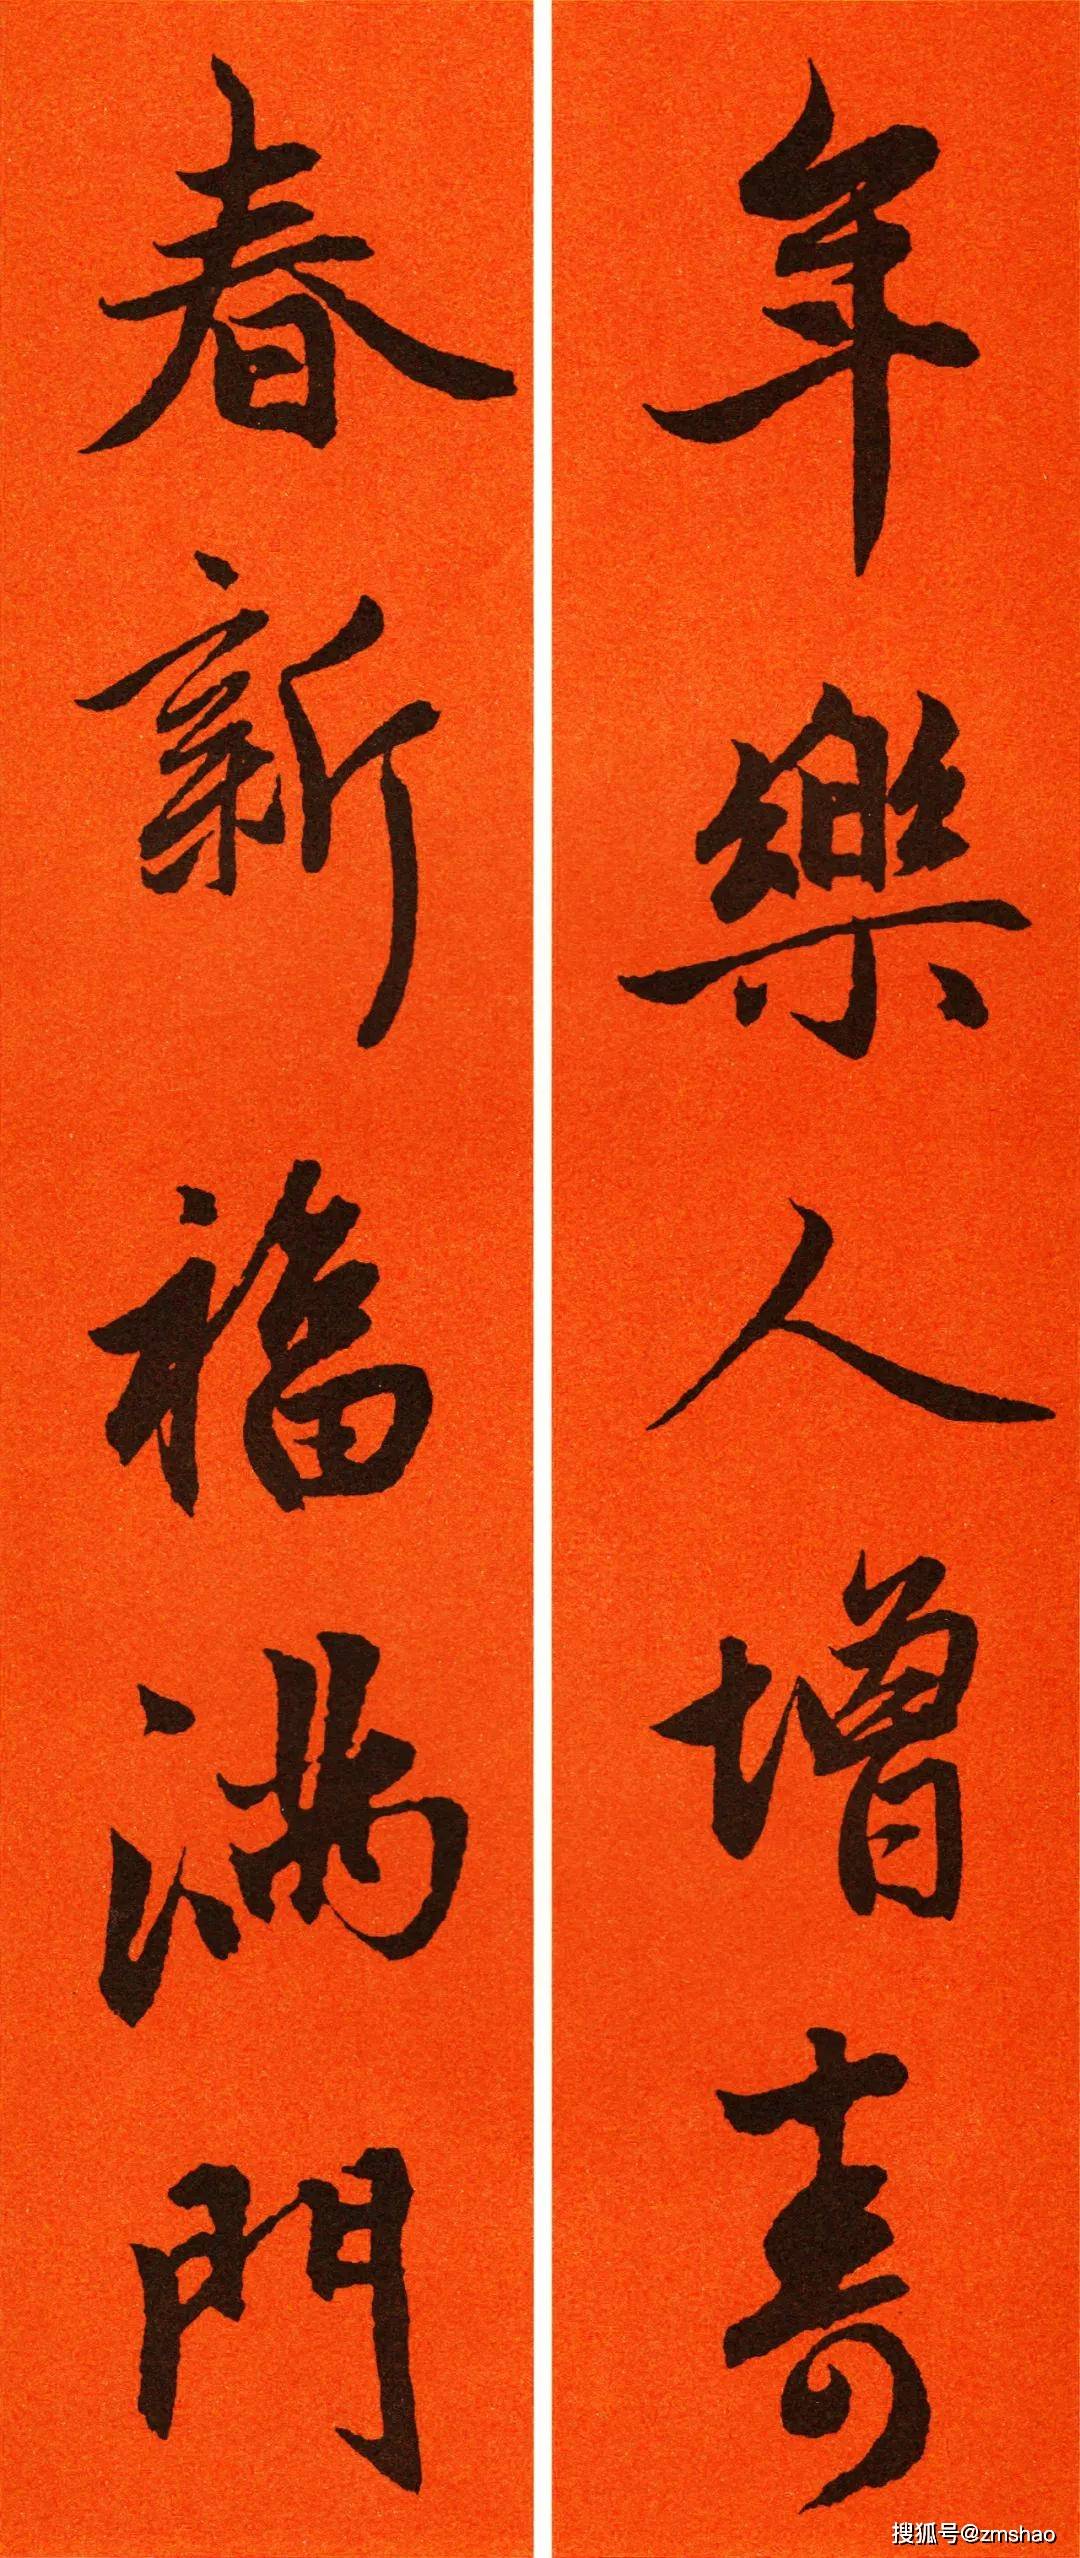 年樂人增壽
春新福满門
搜狐号@zmshao